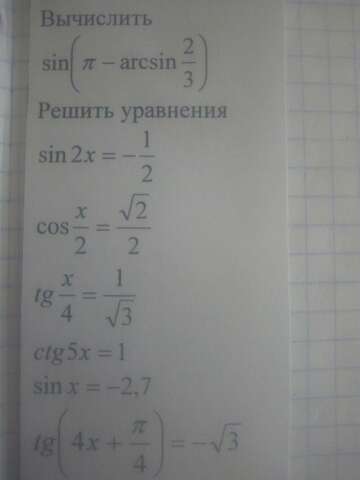 Вычислить
sin(π − arcsin 2/3)
Решить уравнения
sin 2x = −1/2
cos x/2 = √2/2
tg x/4 = 1/√3
ctg5x = 1
sin x = −2,7
tg(4x + π/4) = −√3